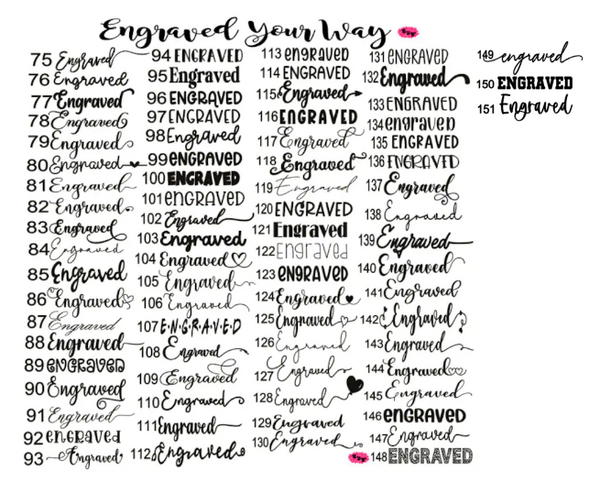 Engraved Your Way
75 Engraved
76 Engraved
77 Engraved
78 Engraved
79 Engraved
80 Engraved
81 Engraved
82 Engraved
83 Engraved
84 Engraved
85 Engraved
86 Engraved
87 Engraved
88 Engraved
89 ENGRAVED
90 Engraved
91 Engraved
92 ENGRAVED
93 Engraved
94 ENGRAVED
95 Engraved
96 ENGRAVED
97 ENGRAVED
98 Engraved
99 ENGRAVED
100 ENGRAVED
101 ENGRAVED
102 Engraved
103 Engraved
104 Engraved
105 Engraved
106 Engraved
107 E·N·G·R·A·V·E·D
108 Engraved
109 Engraved
110 Engraved
111 Engraved
112 Engraved
113 ENGRAVED
114 ENGRAVED
115 Engraved
116 ENGRAVED
117 Engraved
118 Engraved
119 Engraved
120 ENGRAVED
121 Engraved
122 ENGRAVED
123 ENGRAVED
124 Engraved
125 Engraved
126 Engraved
127 Engraved
128 Engraved
129 Engraved
130 Engraved
131 ENGRAVED
132 Engraved
133 ENGRAVED
134 ENGRAVED
135 ENGRAVED
136 ENGRAVED
137 Engraved
138 Engraved
139 Engraved
140 Engraved
141 Engraved
142 Engraved
143 Engraved
144 Engraved
145 Engraved
146 ENGRAVED
147 Engraved
148 ENGRAVED
149 engraved
150 ENGRAVED
151 Engraved